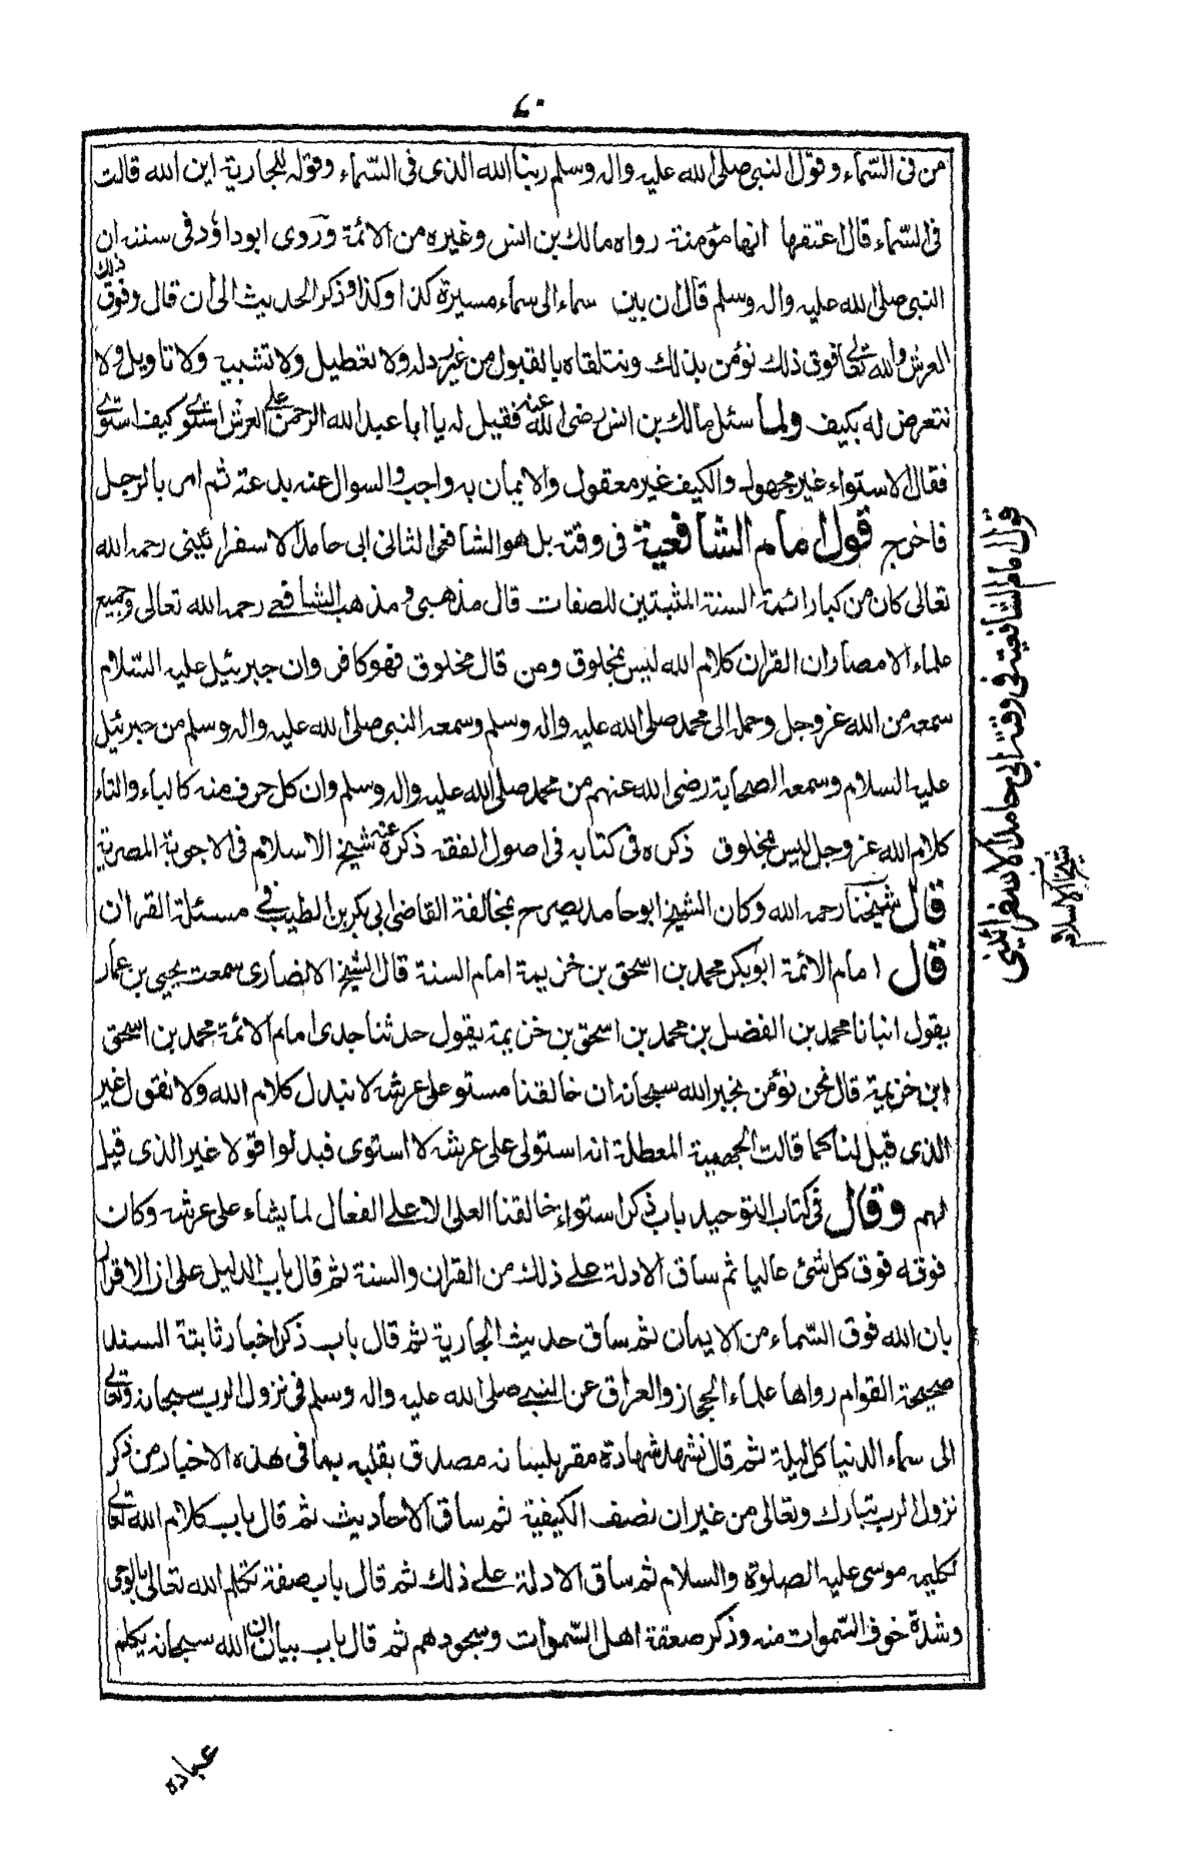 ٧٠
من فى السّماء وقول النبى صلى الله عليه واله وسلم ربنا الله الذى فى السّماء وقوله للجارية اين الله قالت
فى السّماء قال اعتقها انها مؤمنة رواه مالك بن انس وغيره من الائمة وروى ابو داؤد فى سننه ان
النبى صلى الله عليه واله وسلم قال ان بين سماء الى سماء مسيرة كذا وكذا وذكر الحديث الى ان قال وفوق ذلك
العرش والله تعالى فوق ذلك نؤمن بذلك ونتلقاه بالقبول من غير رد له ولا تعطيل ولا تشبيه ولا تاويل ولا
نتعرض له بكيف ولما سئل مالك بن انس رضى الله عنه فقيل له يا ابا عبد الله الرحمن على العرش استوى كيف استوى
فقال الاستواء غير مجهول والكيف غير معقول والايمان به واجب والسوال عنه بدعته ثم امر بالرجل
فاخرج قول امام الشافعية فى وقته بل هو الشافعى الثانى ابى حامد الاسفرائينى رحمه الله
تعالى كان من كبار ائمة السنة المثبتين للصفات قال مذهبى ومذهب الشافعے رحمه الله تعالى وجميع
علماء الامصار ان القران كلام الله ليس بمخلوق ومن قال مخلوق فهو كافر وان جبرئيل عليه السّلام
سمعه من الله عز وجل وحمله الى محمد صلى الله عليه واله وسلم وسمعه النبى صلى الله عليه واله وسلم من جبرئيل
عليه السلام وسمعه الصحابة رضى الله عنهم من محمد صلى الله عليه واله وسلم وان كل حرف منه كالباء والتاء
كلام الله عز وجل ليس بمخلوق ذكره فى كتابه فى اصول الفقه ذكره عنه شيخ الاسلام فى الاجوبة المصرية
قال شيخنا رحمه الله وكان الشيخ ابو حامد يصرح بمخالفة القاضى ابى بكر بن الطيب فے مسئلة القران
قال امام الائمة ابو بكر محمد بن اسحق بن خزيمة امام السنة قال الشيخ الانصارى سمعت يحيى بن عمار
يقول انبانا محمد بن الفضل بن محمد بن اسحق بن خزيمة يقول حدثنا جدى امام الائمة محمد بن اسحق
ابن خزيمة قال نحن نؤمن بخبر الله سبحانه ان خالقنا مستو على عرشه لا نبدل كلام الله ولا نقول غير
الذى قيل لنا كما قالت الجهمية المعطلة انه استولى على عرشه لا استوى فبدلوا قولا غير الذى قيل
لهم وقال فى كتاب التوحيد باب ذكر استواء خالقنا العلى الاعلے الفعال لما يشاء على عرشه وكان
فوقه فوق كل شئ عاليا ثم ساق الادلة علے ذلك من القران والسنة ثم قال باب الدليل على ان الاقرار
بان الله فوق السّماء من الايمان ثم ساق حديث الجارية ثم قال باب ذكر اخبار ثابتة السند
صحيحة القوام رواها علماء الحجاز والعراق عن النبے صلى الله عليه واله وسلم فى نزول الرب سبحانه وتعالى
الى سماء الدنيا كل ليلة ثم قال نشهد شهادة مقر بلسانه مصدق بقلبه بما فى هذه الاخبار من ذكر
نزول الرب تبارك وتعالى من غير ان نصف الكيفية ثم ساق الاحاديث ثم قال باب كلام الله تعالى
تكليمه موسى عليه الصلوة والسلام ثم ساق الادلة علے ذلك ثم قال باب صفة تكلم الله تعالى بالوحى
وشدة خوف السّموات منه وذكر صعقة اهل السّموات وسجودهم ثم قال باب بيان ان الله سبحانه يكلم
قول امام الشافعية فى وقته ابى حامد الاسفرائينى
شيخ الاسلام
عباده